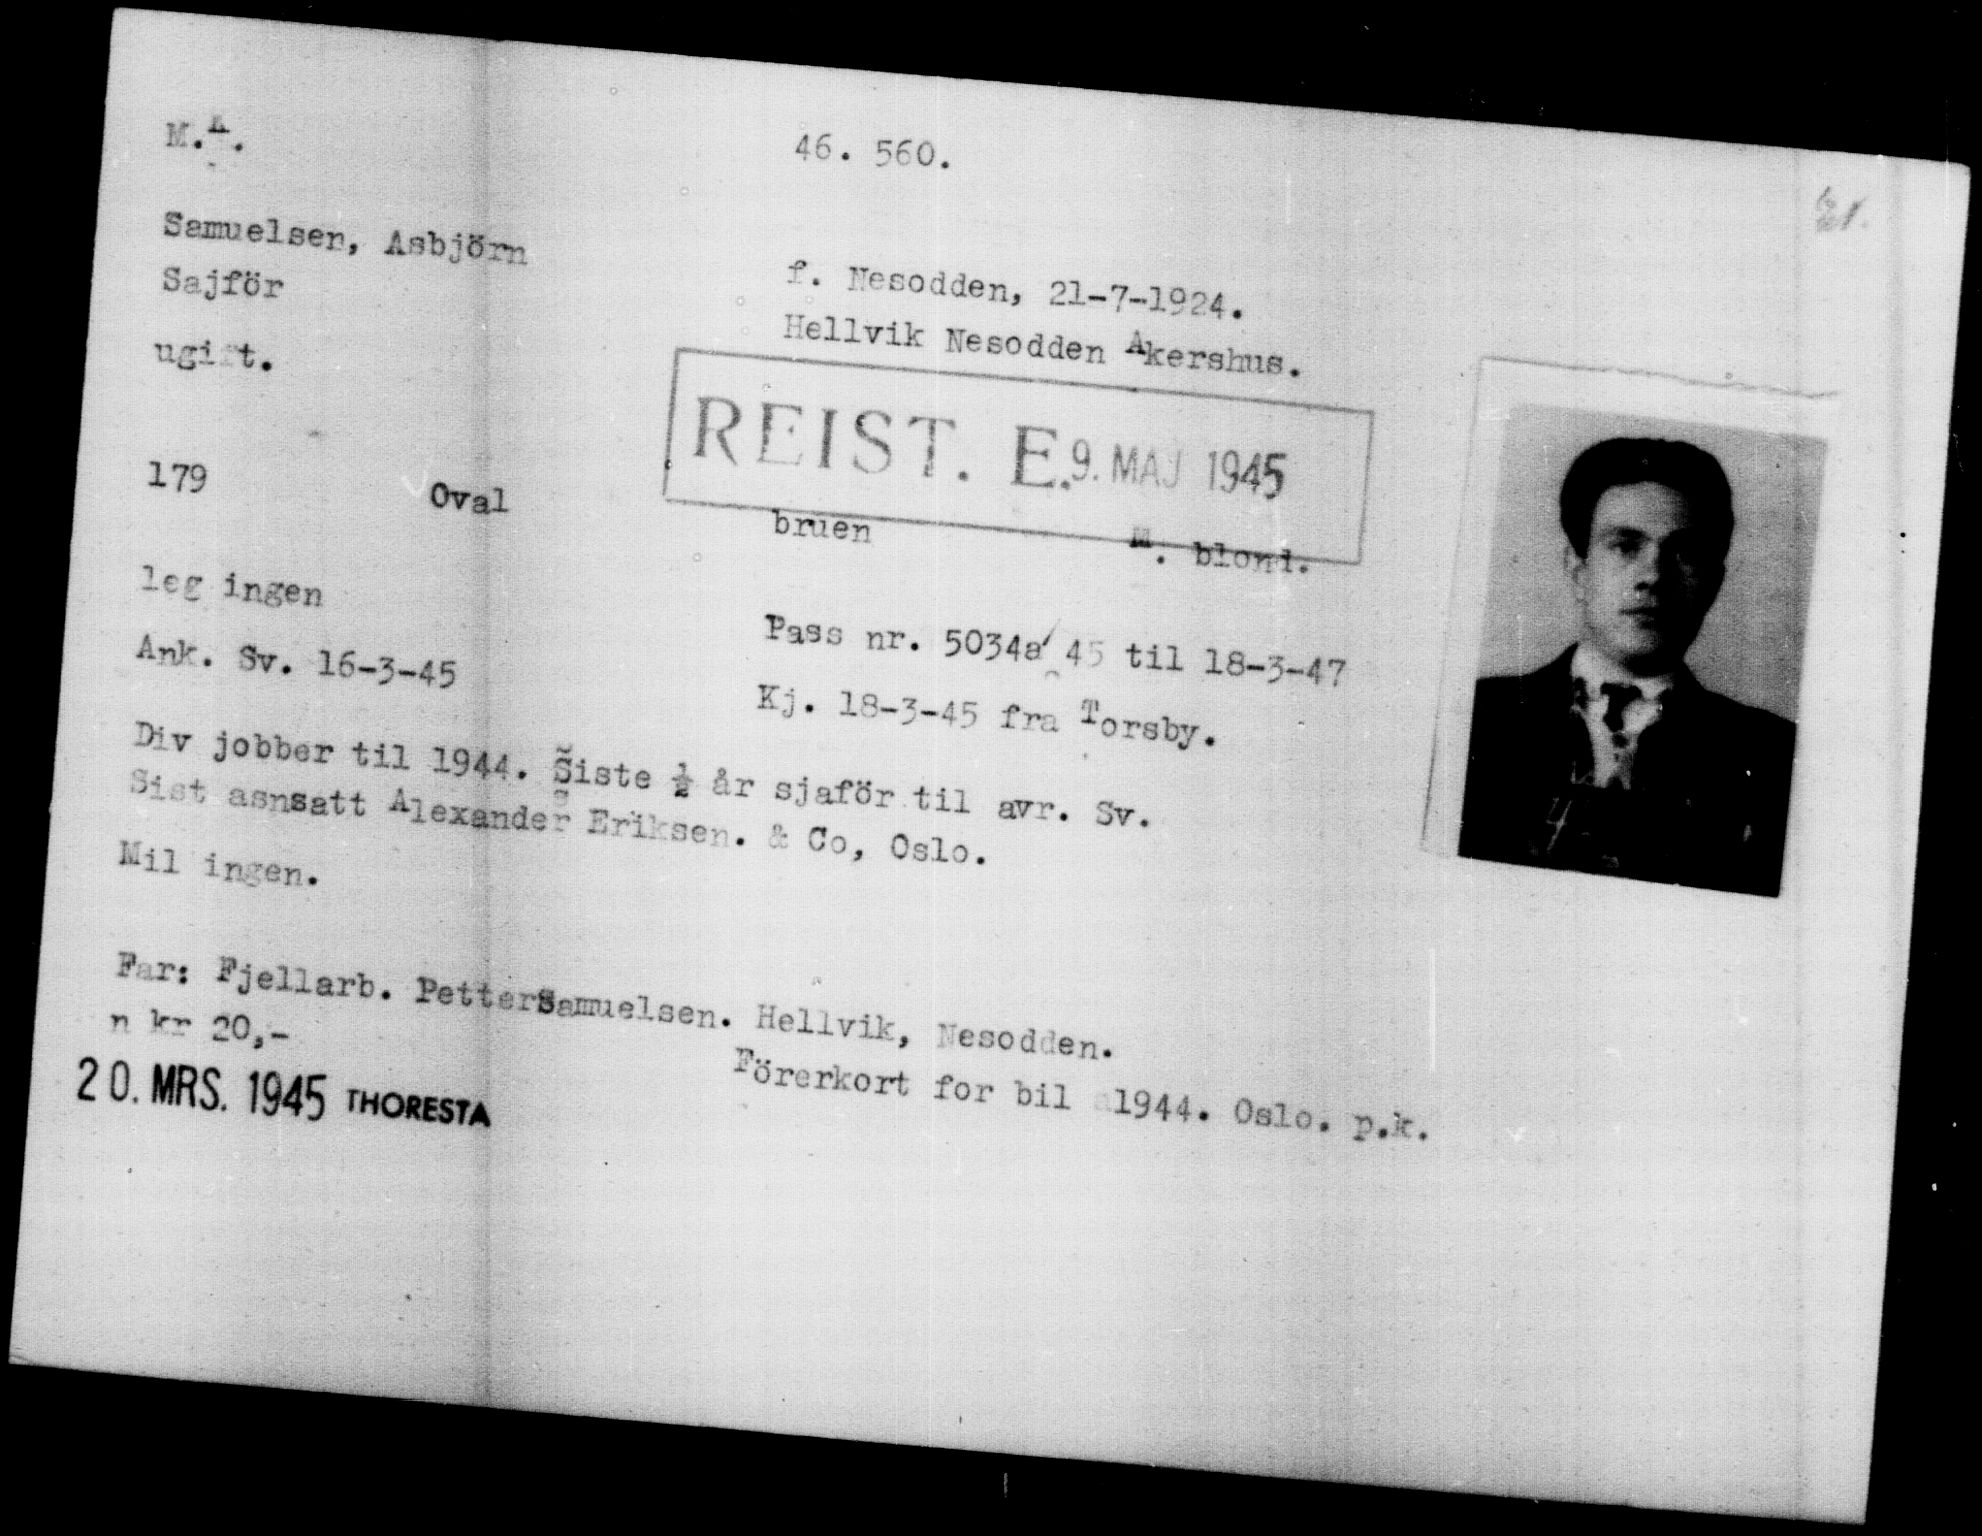 M.K. 46. 560.
Samuelsen, Asbjörn f. Nesodden, 21-7-1924.
Sajför Hellvik Nesodden Akershus.
ugift.
REIST. E. 9. MAJ 1945
179 Oval bruen M. blond.
leg ingen
Ank. Sv. 16-3-45 Pass nr. 5034a/45 til 18-3-47
Kj. 18-3-45 fra Torsby.
Div jobber til 1944. Siste ½ år sjaför til avr. Sv.
Sist asnsatt Alexander Eriksen. & Co, Oslo.
Mil ingen.
Far: Fjellarb. Petter Samuelsen. Hellvik, Nesodden.
n kr 20,- Förerkort for bil a1944. Oslo. p.k.
20. MRS. 1945 THORESTA